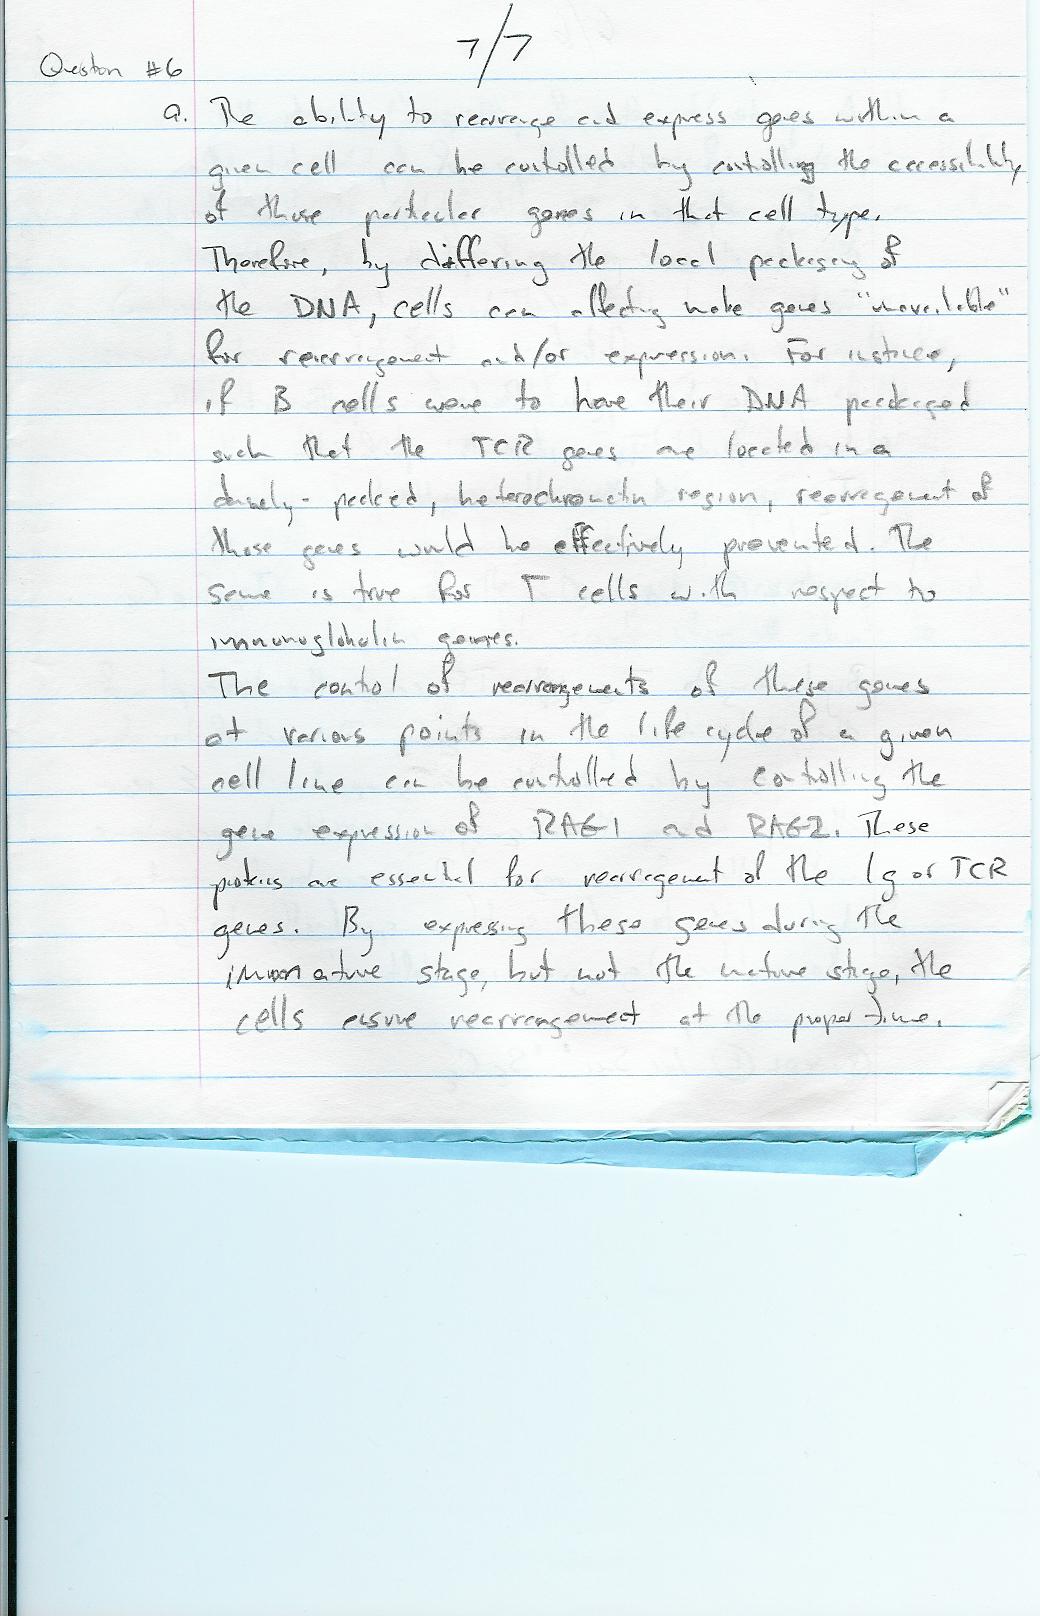 7/7
Question #6
a. The ability to rearrange and express genes within a
given cell can be controlled by controlling the accessibility
of those particular genes in that cell type.
Therefore, by differing the local packaging of
the DNA, cells can effecting make genes "unavailable"
for rearrangement and/or expression. For instance,
if B cells were to have their DNA packaged
such that the TCR genes are located in a
densely-packed, heterochromatin region, rearrangement of
those genes would be effectively prevented. The
same is true for T cells with respect to
immunoglobulin genes.
The control of rearrangements of these genes
at various points in the life cycle of a given
cell line can be controlled by controlling the
gene expression of RAG1 and RAG2. These
proteins are essential for rearrangement of the Ig or TCR
genes. By expressing these genes during the
immature stage, but not the mature stage, the
cells ensure rearrangement at the proper time.